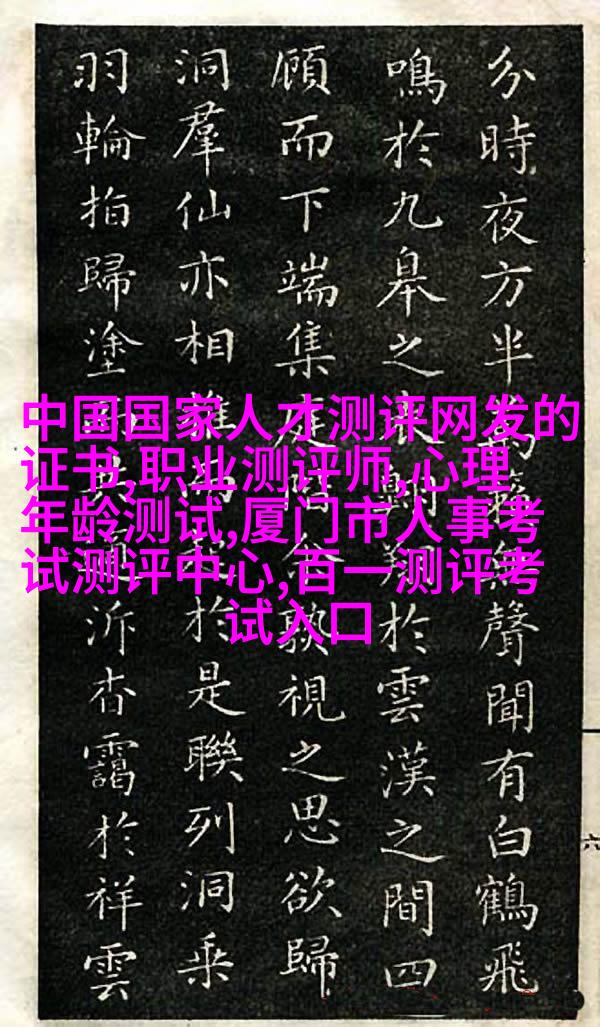 分時夜方半萬籟無聲聞有白鶴飛
鳴於九皋之表翱翔於雲漢之間四
顧而下端集庭際余熟視之思欲歸
洞羣仙亦相於是聯列洞乘
羽輪拍歸塗泝杳靄於祥雲
中国国家人才测评网发的
证书,职业测评师,心理
年龄测试,厦门市人事考
试测评中心,百一测评考
试入口
六